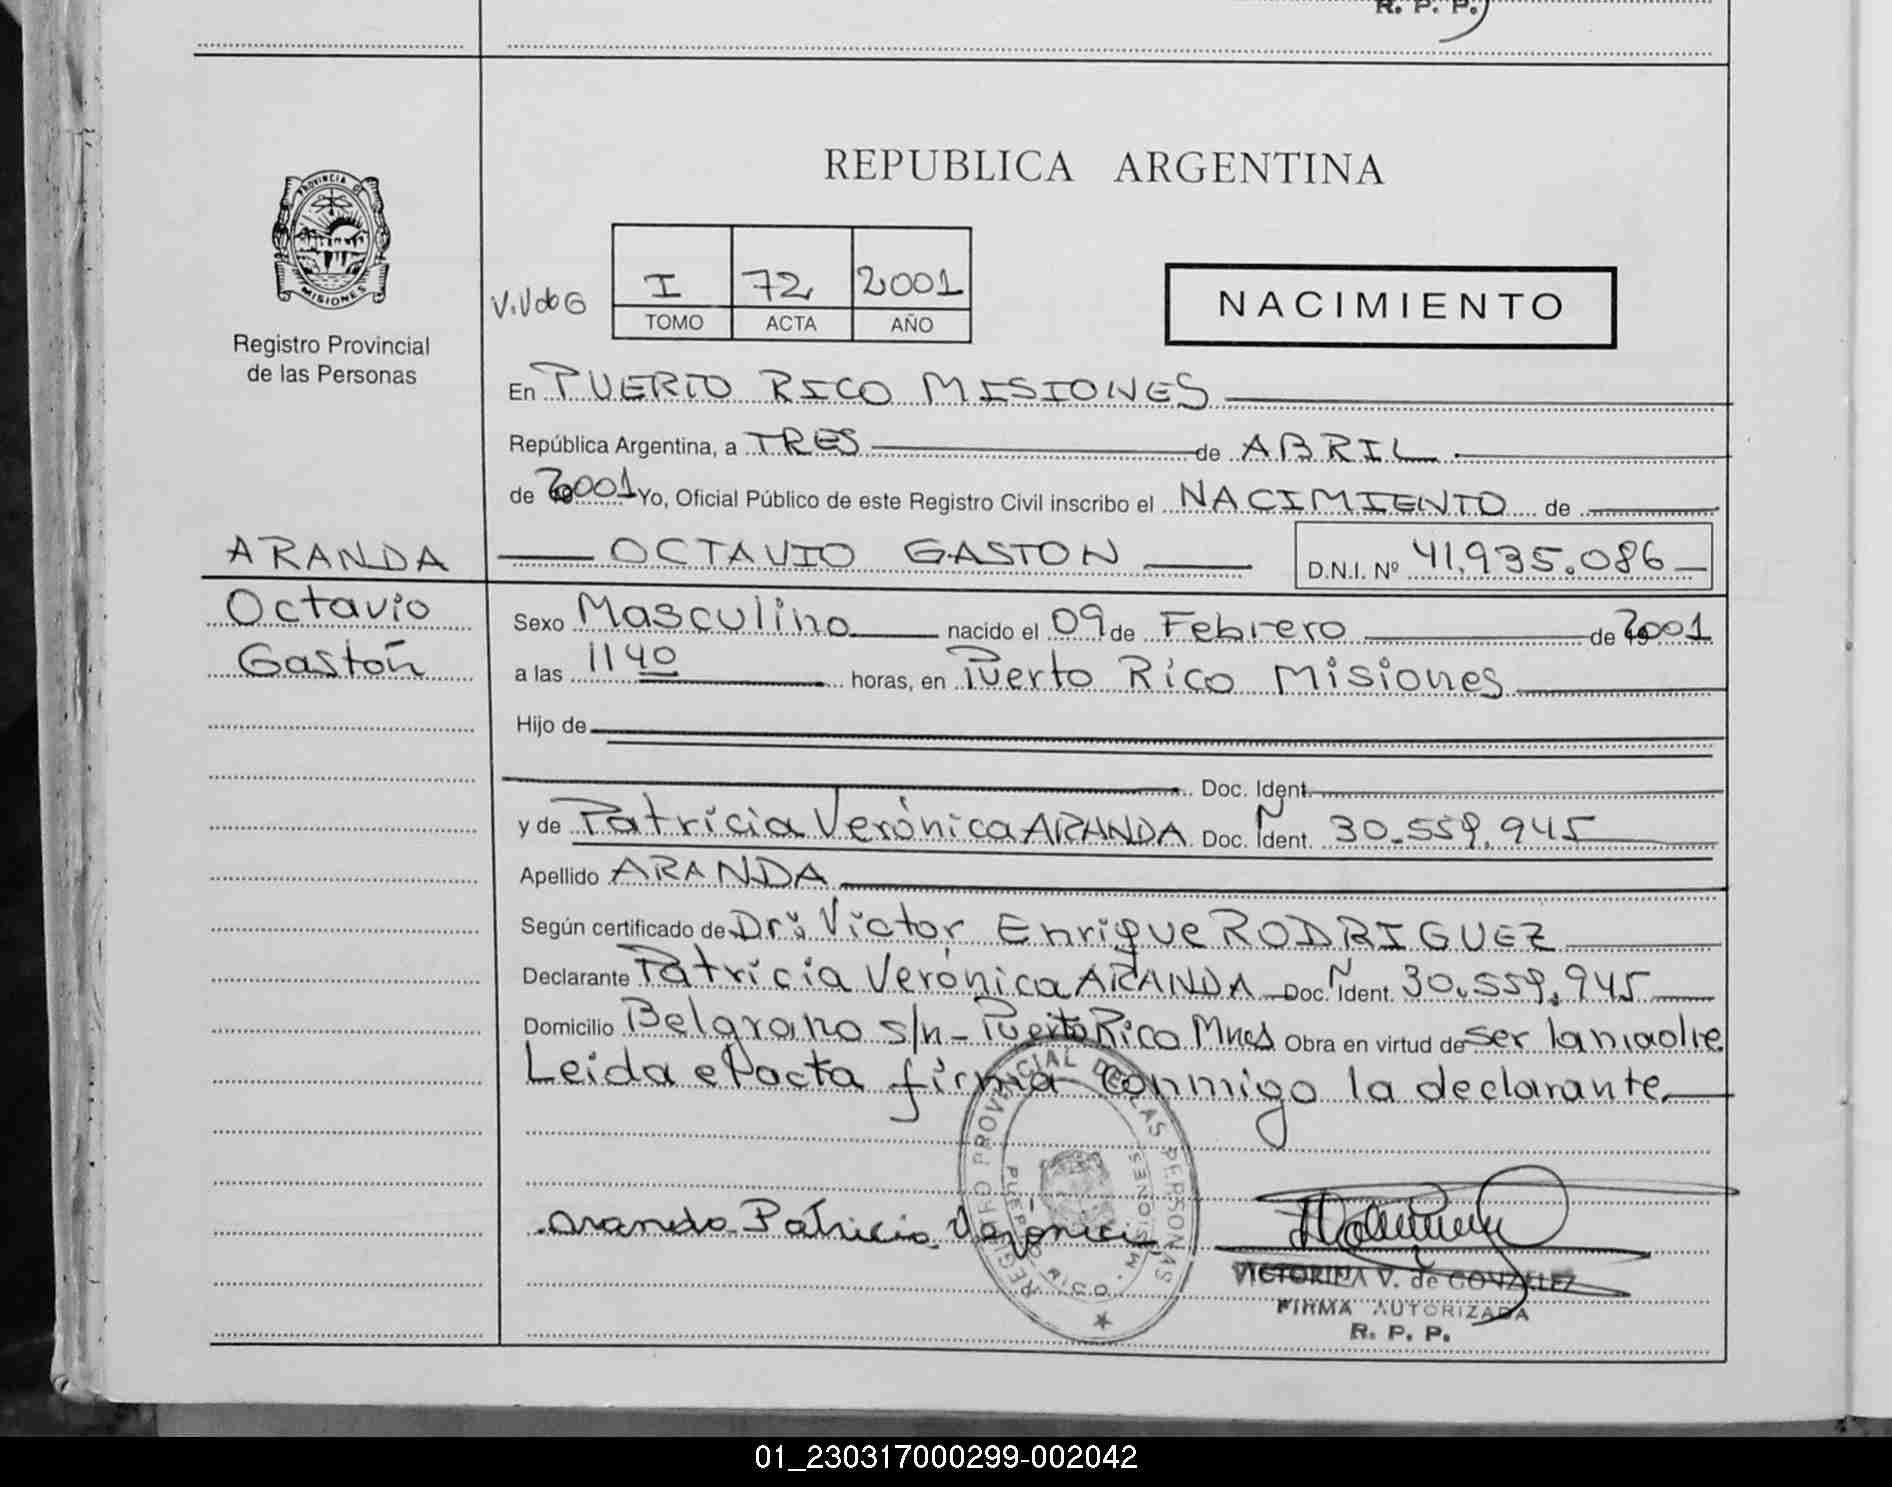 R. P. P.
PROVINCIA DE
MISIONES
Registro Provincial
de las Personas
REPUBLICA ARGENTINA
V.VdeG
I 72 2001
TOMO ACTA AÑO
NACIMIENTO
En PUERTO RICO MISIONES
República Argentina, a TRES de ABRIL
de 2001 Yo, Oficial Público de este Registro Civil inscribo el NACIMIENTO de
ARANDA
Octavio
Gastón
OCTAVIO GASTON D.N.I. Nº 41.935.086
Sexo Masculino nacido el 09 de Febrero de 2001
a las 11 40 horas, en Puerto Rico Misiones
Hijo de
Doc. Ident.
y de Patricia Verónica ARANDA Doc. Ident. N 30.559.945
Apellido ARANDA
Según certificado de Dr: Víctor Enrique RODRIGUEZ
Declarante Patricia Verónica ARANDA Doc. Ident. N 30.559.945
Domicilio Belgrano s/n - Puerto Rico Mnes Obra en virtud de ser la madre
Leida el acta firma conmigo la declarante
REGISTRO PROVINCIAL DE LAS PERSONAS
PUERTO RICO - MISIONES
Aranda Patricia Verónica
VICTORINA V. de GONZALEZ
FIRMA AUTORIZADA
R. P. P.
01_230317000299-002042